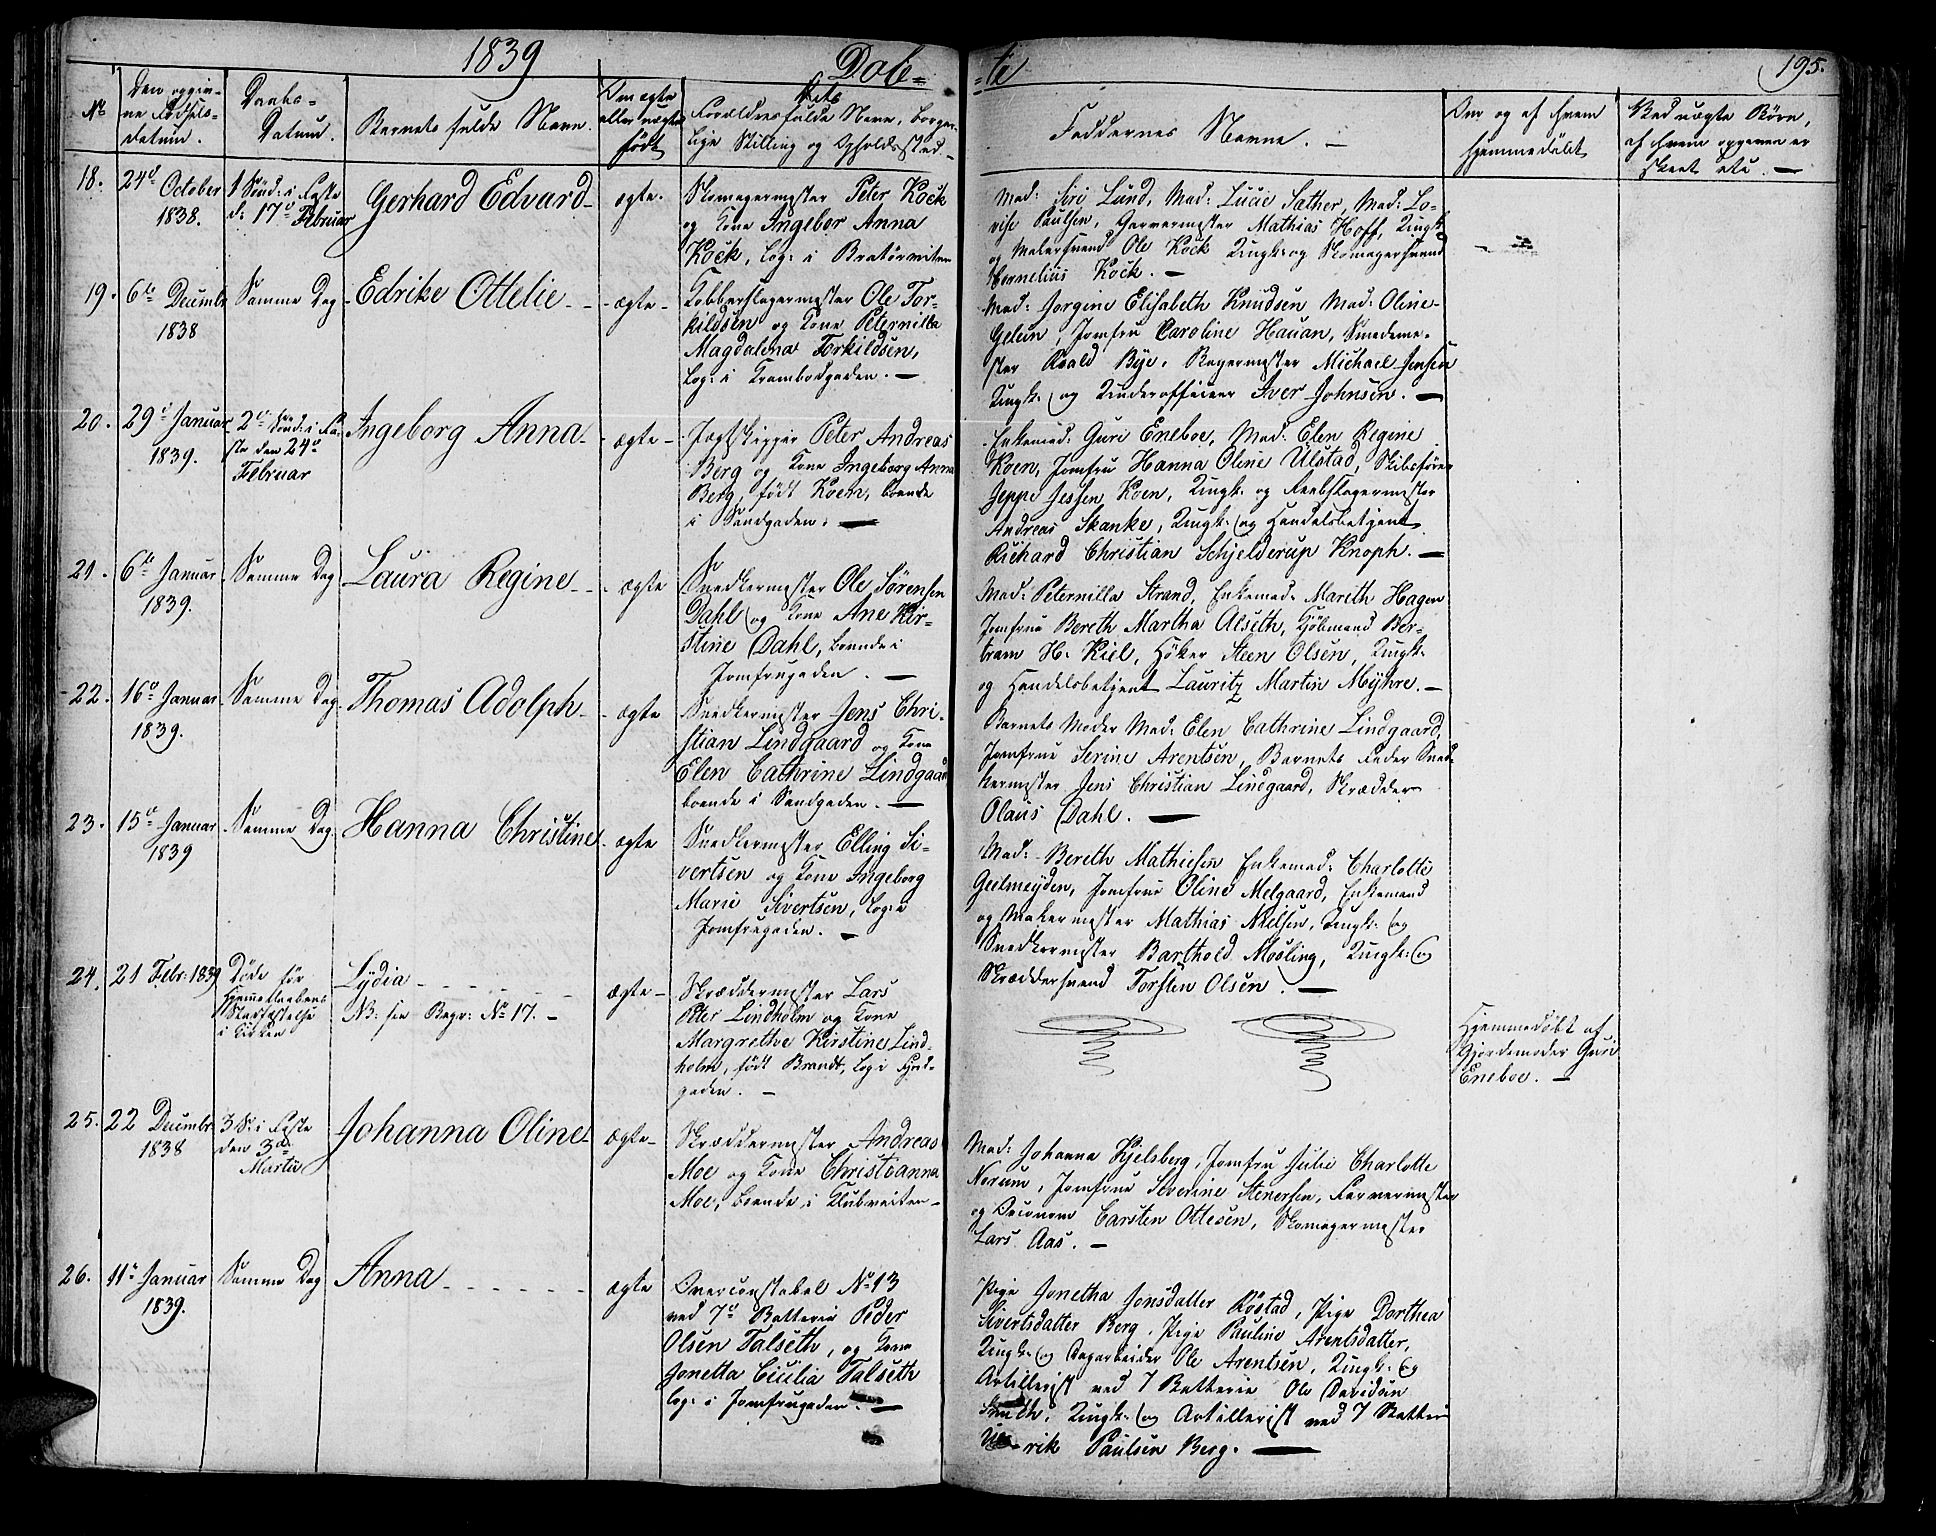 1839 Døb= =te 195.
No
Den opgiv-
ne Fødsels-
datum.
Daabs=
Datum.
Barnets fulde Navn.
Om ægte
eller uægte
født
Forældrenes fulde Navn, borger-
lige Stilling og Opholdssted.
Faddernes Navne.
Om og af hvem
hjemmedøbt
Ved uægte Børn,
af hvem opgaven er
skeet etc.
18. 24d October
1838.
1 Sønd: i Faste
d: 17d Februar
Gerhard Edvard
ægte.
Skomagermester Peter Kock
og Kone Ingebor Anna
Kock, log: i Bratørveiten
Mad: Siri Lund, Mad: Lucie Sather, Mad: Lo-
vise Paulsen, Garvermester Mathias Hoff, Ungk:
og Malersvend Ole Kock Ungk: og Skomagersvend
Cornelius Kock.
19. 6te Decembr
1838
Samme Dag
Edrike Ottelie
ægte
Kobberslagermester Ole Tor-
kildsen og Kone Peternilla
Magdalena Torkildsen,
log: i Krambodgaden.
Mad: Jorgine Elisabeth Knudsen Mad: Oline
Gelein, Jomfru Caroline Hauan, Smedeme-
ster Roald Bye, Bagermester Michael Jensen
Ungk: og Underofficeer Iver Johnsen.
20. 29d Januar
1839.
2d Sønd: i Fa-
ste den 24d
Februar
Ingeborg Anna
ægte
Jagtskipper Peter Andreas
Berg og Kone Ingeborg Anna
Berg, født Koen, boende
i Sandgaden.
Enkemad: Guri Eneboe, Mad: Elen Regine
Koen, Jomfru Hanna Oline Ulstad, Skibsfører
Jeppe Jessen Koen, Ungk: og Reebslagermester
Andreas Skanke, Ungk: og Handelsbetjent
Richard Christian Schjelderup Knoph.
21. 6te Januar
1839.
Samme Dag
Laura Regine
ægte
Snedkermester Ole Sørensen
Dahl og Kone Ane Kir-
stine Dahl, boende i
Jomfrugaden.
Mad: Peternilla Strand, Enkemad: Marith Hagen
Jomfrue Bereth Martha Alseth, Kjøbmand Ber-
tram H. Kiel, Høker Steen Olsen, Ungk:
og Handelsbetjent Lauritz Martin Myhre.
22. 16d Januar
1839.
Samme Dag
Thomas Adolph
ægte
Snedkermester Jens Chri-
stian Lindgaard og Kone
Elen Cathrine Lindgaard
boende i Sandgaden.
Barnets Moder Mad: Elen Cathrine Lindgaard,
Jomfrue Serine Arentsen, Barnets Fader Sned-
kermester Jens Christian Lindgaard, Skrædder
Olaus Dahl.
23. 15d Januar
1839
Samme Dag
Hanna Christine
ægte
Snedkermester Elling Si-
vertsen og Kone Ingeborg
Marie Sivertsen, log: i
Jomfrugaden.
Mad: Bereth Mathiesen Enkemad: Charlotte
Geilmeyden, Jomfrue Oline Melgaard, Enkemand
og Malermester Mathias Nielsen, Ungk: og
Snedkermester Barthold Møsling, Ungk: og
Skræddersvend Torsten Olsen.
24. 21 Febr: 1839
Døde før
Hjemedaabens
Stadfæstelse
i Kirken
Lydia
NB: see Begr: No 17.
ægte
Skræddermester Lars
Peter Lindholm og Kone
Margrethe Kirstine Lind-
holm, født Brandt, log: i Fjord-
gaden.
Hjemmedøbt af
Gjordemoder Guri
Eneboe.
25. 22 Decembr
1838
3 S: i Faste
den 3d
Martii
Johanna Oline
ægte
Skræddermester Andreas
Moe og Kone Christianna
Moe, boende i Klubveiten
Mad: Johanna Kjelsberg, Jomfru Julie Charlotte
Norum, Jomfrue Severine Stenersen, Farvermester
og Oeconom Carsten Ottesen, Skomagermester
Lars Aas.
26. 11te Januar
1839.
Samme Dag
Anna
ægte
Overconstabel No 13
ved 7d Batterie Peder
Olsen Talseth, og Kone
Jonetta Cicilia Talseth
log: i Jomfrugaden.
Pige Jonetha Jonsdatter Røstad, Pige Dorthea
Sivertsdatter Berg, Pige Pauline Arentsdatter,
Ungk: og Dagarbeider Ole Arentsen, Ungk: og
Artillerist ved 7 Batterie Ole Davidsen
Ungk: og Artillerist ved 7 Batteri
Paulsen Berg.